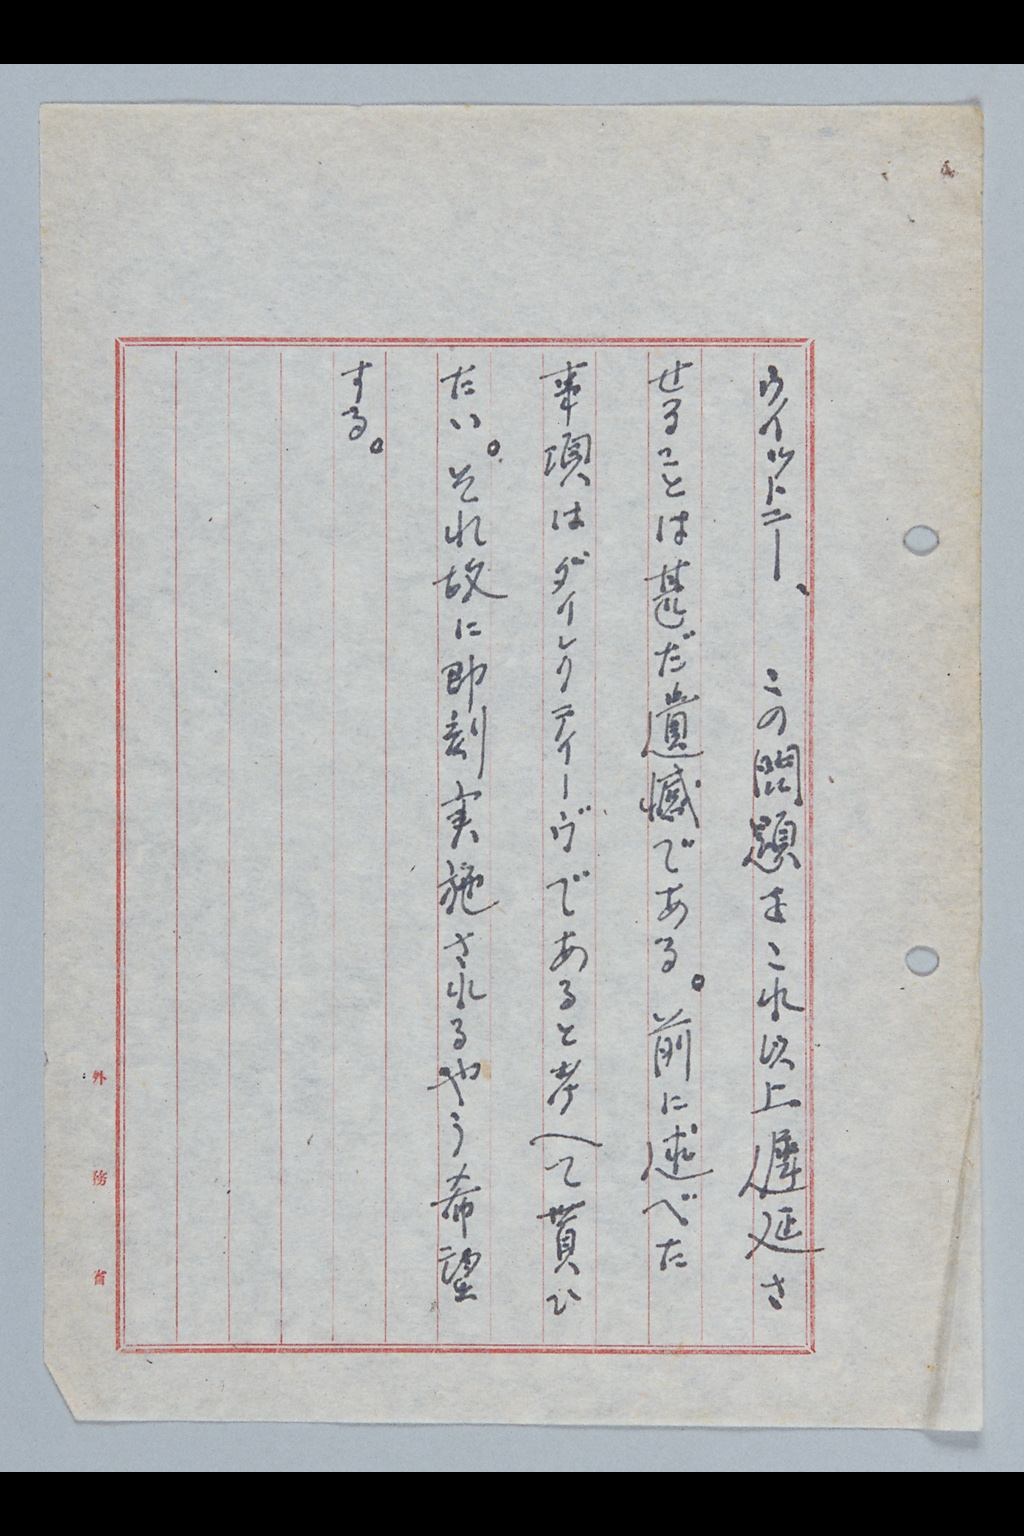 ウイットニー、　この問題をこれ以上遅延さ
せることは甚だ遺憾である。前に述べた
事項はダイレクティーヴであると考へて貰ひ
たい。それ故に即刻実施されるやう希望
する。
外務省